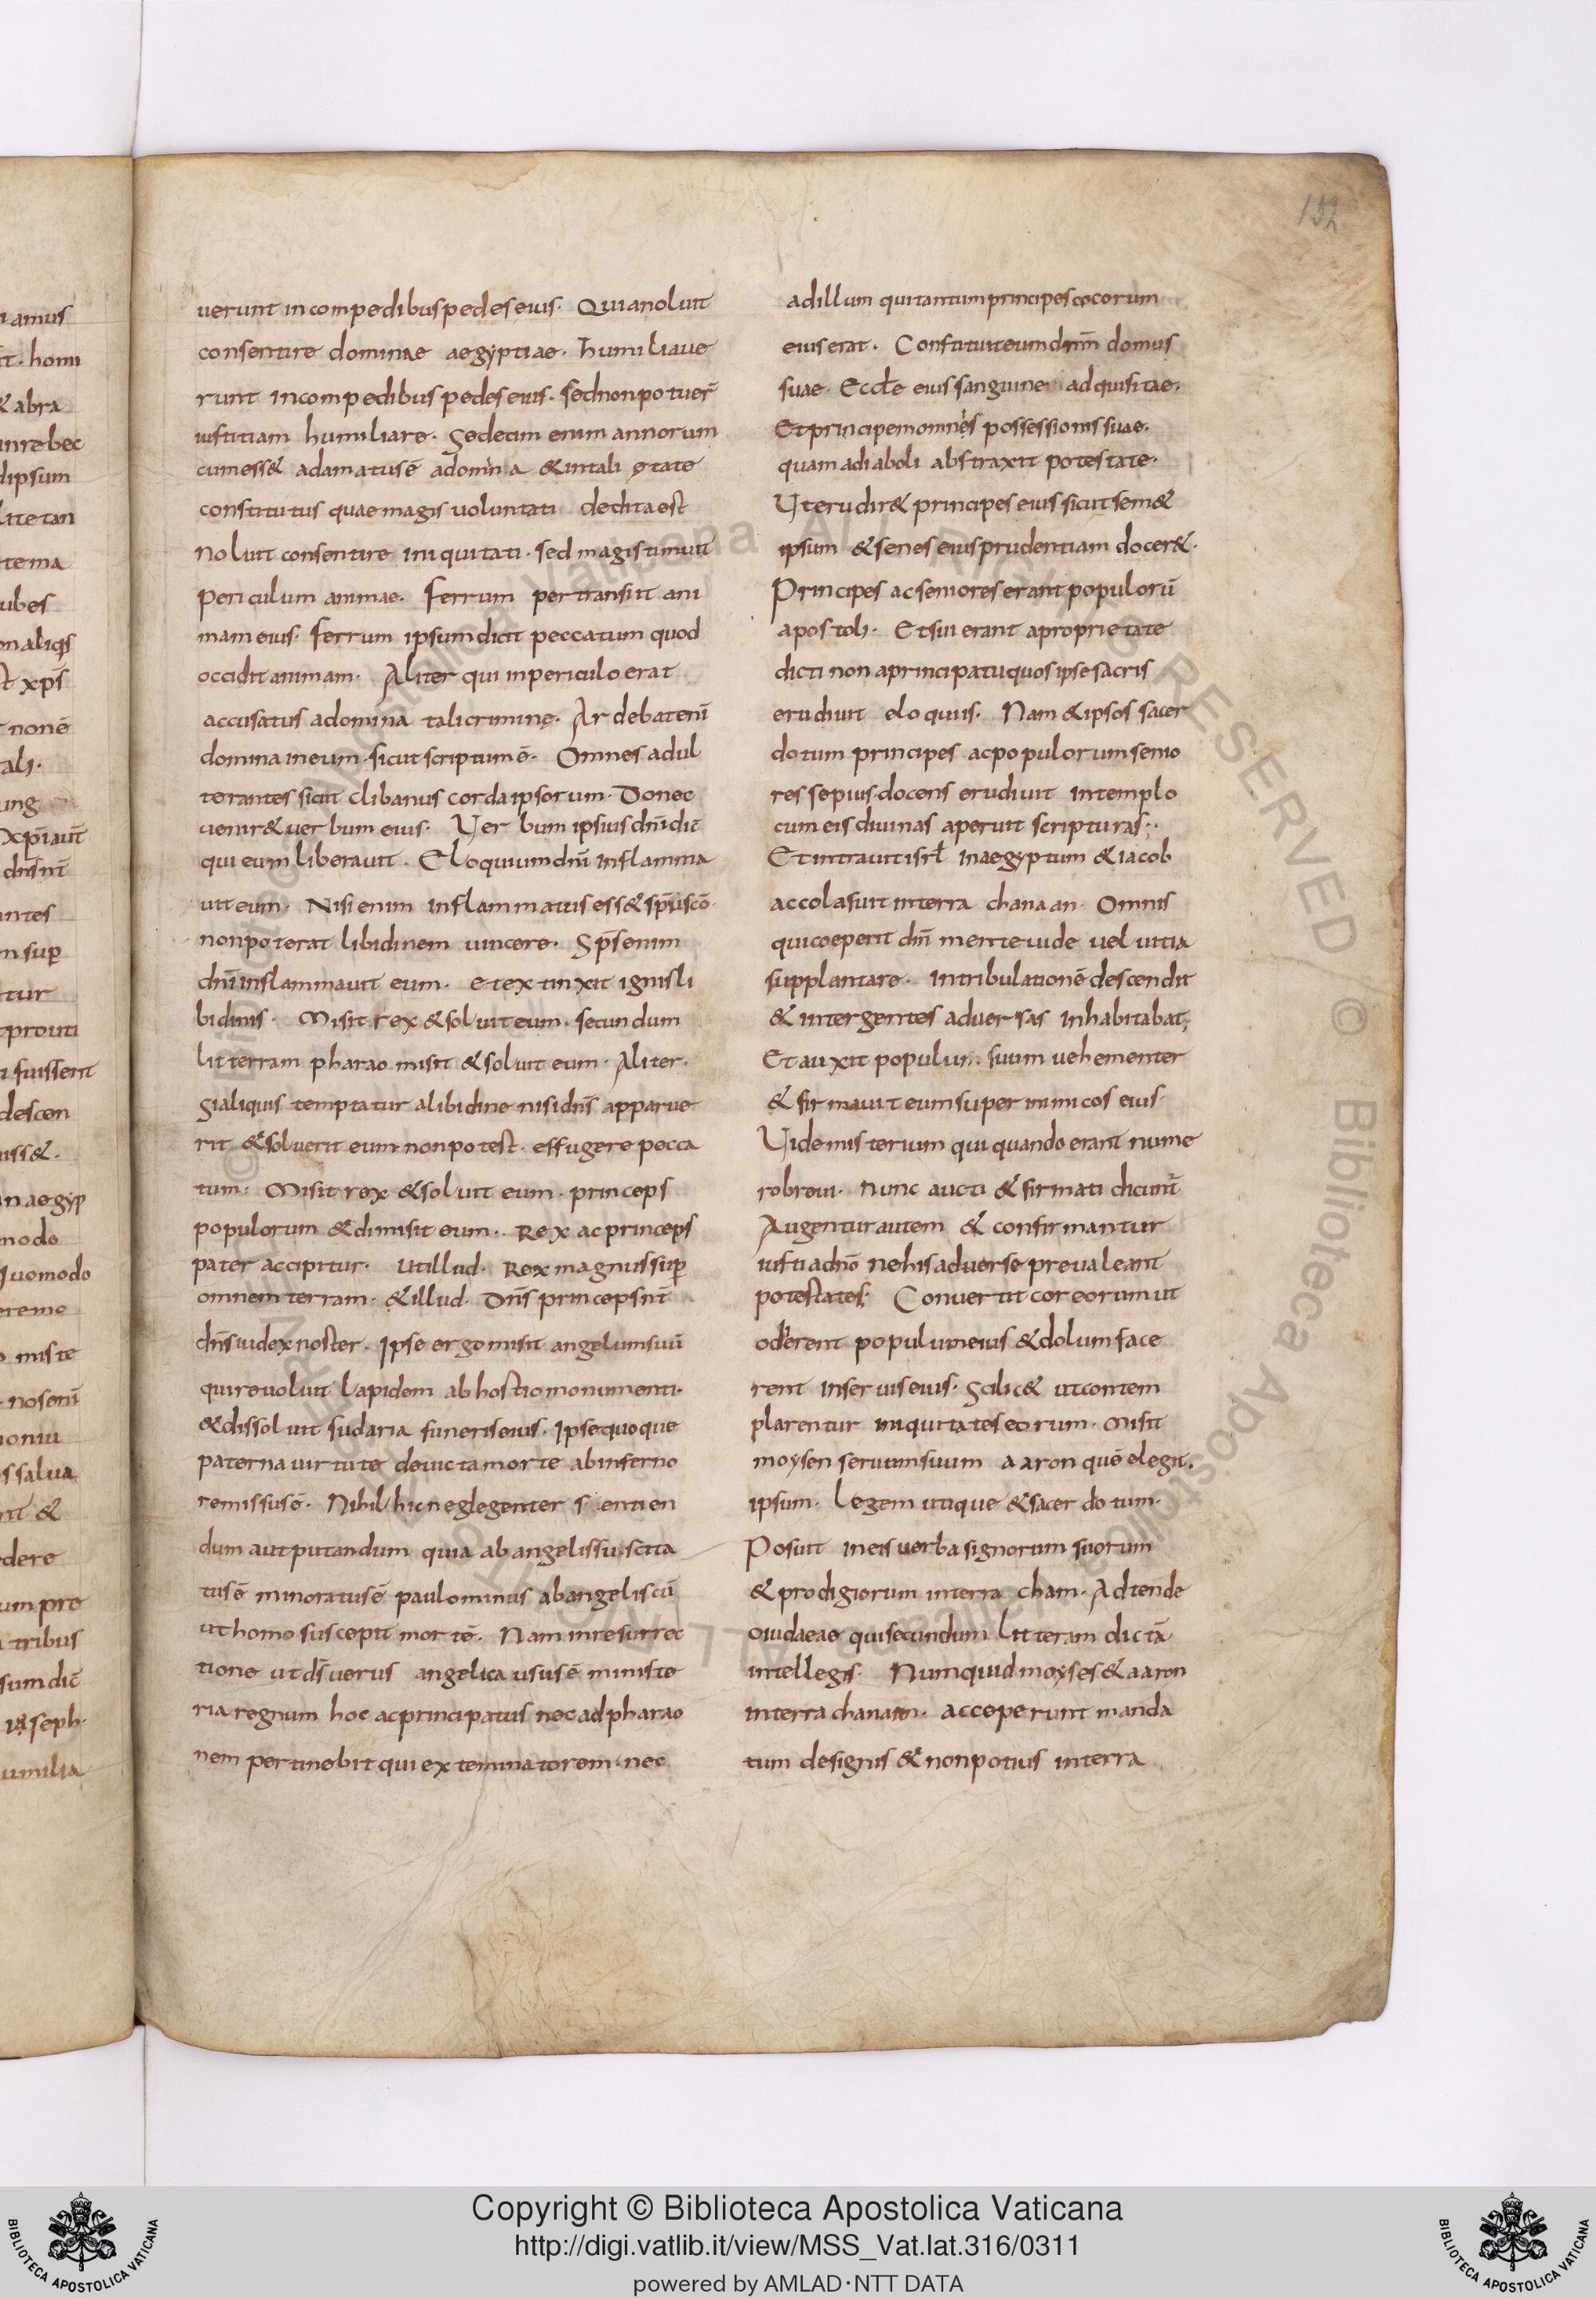 amus
it · homi
& abra
inrebec
dipsum
litetan
tema
ubes
onaliqis
t xp̄s
nonē
ali·
ung
xp̄iaut̄
dn̄s int̄
antes
m sup̄
tur
tprouti
fuissent
descen
iss&·
naegyp
modo
quomodo
eremo
miste
nosem̄
moniu
ssalua
nt &
dere
um pre
tribus
sumdic̄
ioseph·
umilia
152
uerunt incompedibuspedeseius· Quianoluit
consentire dominae aegyptiae· humiliaue
runt incompedibus pedeseius· sednonpotuer̄
iustitiam humiliare· Sedecim enim annorum
cumess& adamatusē adomina &intali ętate
constitutus quaemagis uoluntati deditaest
Noluit consentire iniquitati· sed magistimuit
periculum animae· Ferrum pertransiit ani
mameius· ferrum ipsumdicit peccatum quod
occidit animam· Aliter qui inpericuloerat
accusatus adomina talicrimine· Ardebatenī
domina ineum· sicut scriptumē· Omnes adul
terantes sicut clibanus cordaipsorum· Donec
uenir&uerbum eius· Uerbum ipsius dn̄idic̄
qui eum liberauit· Eloquiumdn̄i inflamma
uit eum· Nisi enim inflammatus ess&sp̄uscō·
nonpoterat libidinem uincere· Sp̄senim
dn̄i inflammauit eum· et extinxit ignisli
bidinis· Misit rex &soluiteum· secundum
litterram pharao misit &soluit eum· Aliter·
Sialiquis temptatur alibidine nisidn̄s apparue
rit &soluerit eum nonpotest· effugere pecca
tum· Misit rex &soluit eum· princeps
populorum &dimisit eum· Rex ac princeps
pater accipitur· Utillud· Rex magnus sup̄
omnem terram· &illud· Dn̄s princeps nr̄
dn̄s iudex noster· Ipse ergo misit angelumsuū
qui reuoluit lapidem ab hostio monumenti·
&dissoluit sudaria funeriseius· Ipsequoque
paterna uirtute deuictamorte abinferno
remissusē· Nihil hicneglegenter s entien
dum aut putandum quia ab angelissu scita
tusē minoratusē paulominus abangeliscū
ut homo suscepit mortē· Nam inresurrec
tione ut ds̄uerus angelica ususē ministe
ria regnum hoc acprincipatus necadpharao
nem pertinebit quiexteminatorem· nec
adillum quitantumprincipescocorum
eiuserat· Constituiteumdn̄m domus
suae· Eccl̄e eius sanguine adquisitae·
Etprincipemomnes possessionissuae·
quam adiaboli abstraxit potestate·
Uterudir& principes eius sicutsem&
ipsum &senes eiusprudentiam docer&·
Principes acseniores erant populorū
apostoli· Etsui erant aproprietate
dicti non aprincipatu quosipsesacris
erudiuit eloquiis· Nam &ipsos sacer
dotum principes acpopulorumsenio
res sepius·docens erudiuit intemplo
cum eis diuinas aperuit scripturas·
Etintrauitisrl̄ inaegyptum &iacob
accolasuit interra chanaan· Omnis
quicoeperit dn̄m menteuide uel uitia
supplantare· intribulationē descendit
& intergentes aduersas inhabitabat;
Etauxit populum suum uehementer
& firmauit eumsuper inimicos eius·
Uidemisterium qui quando erant nume
robreui· nunc aucti & firmati dicunt̄
Augenturautem & confirmantur
iustiadn̄o nehisaduerse preualeant
potestates; Conuertit coreorumut
oderent populumeius &dolumface
rent inseruiseius· Scilic& utcontem
plarentur iniquitateseorum· Misit
moysen seruumsuum aaron quē elegit·
ipsum· Legem utique &sacerdotum·
Posuit ineis uerba signorum suorum
& prodigiorum interra cham· Adtende
oiudaeae quisecundum litteram dictā
intellegis· Numquidmoyses&aaron
interra chanaan· acceperunt manda
tum designis &nonpotius interra
Copyright © Biblioteca Apostolica Vaticana
http://digi.vatlib.it/view/MSS_Vat.lat.316/0311
powered by AMLAD·NTT DATA
BIBLIOTECA APOSTOLICA VATICANA
BIBLIOTECA APOSTOLICA VATICANA